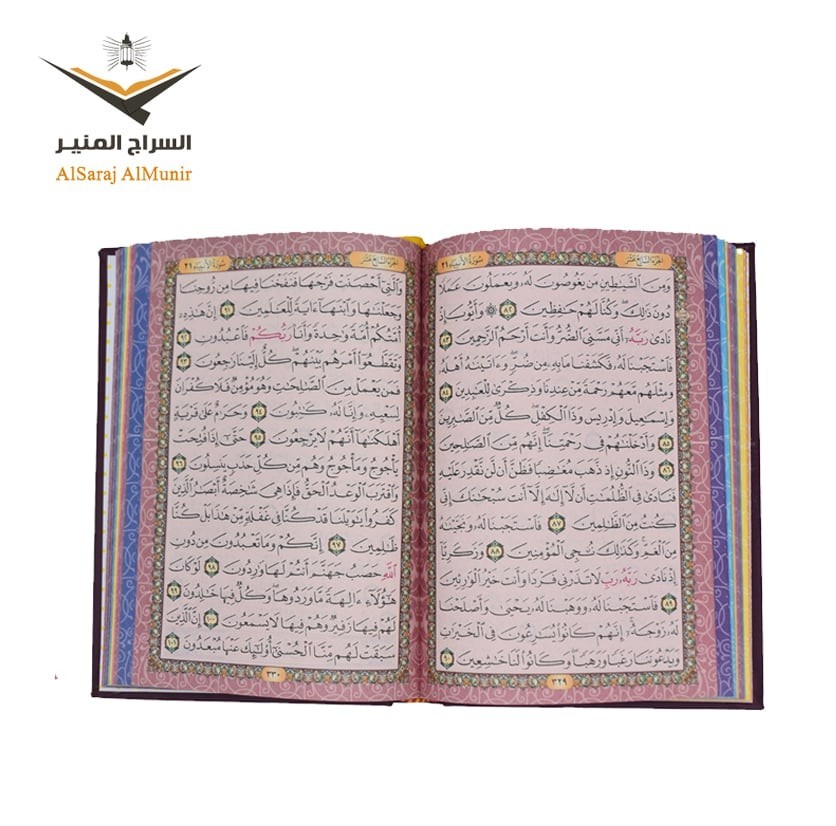 السراج المنير
AlSaraj AlMunir
الجزء السابع عشر
سورة الأنبياء ٢١
وَمِنَ ٱلشَّيَٰطِينِ مَن يَغُوصُونَ لَهُۥ وَيَعْمَلُونَ عَمَلًا
دُونَ ذَٰلِكَ ۖ وَكُنَّا لَهُمْ حَٰفِظِينَ ٨٢ ۞ وَأَيُّوبَ إِذْ
نَادَىٰ رَبَّهُۥٓ أَنِّى مَسَّنِىَ ٱلضُّرُّ وَأَنتَ أَرْحَمُ ٱلرَّٰحِمِينَ ٨٣
فَٱسْتَجَبْنَا لَهُۥ فَكَشَفْنَا مَا بِهِۦ مِن ضُرٍّ ۖ وَءَاتَيْنَٰهُ أَهْلَهُۥ
وَمِثْلَهُم مَّعَهُمْ رَحْمَةً مِّنْ عِندِنَا وَذِكْرَىٰ لِلْعَٰبِدِينَ ٨٤
وَإِسْمَٰعِيلَ وَإِدْرِيسَ وَذَا ٱلْكِفْلِ ۖ كُلٌّ مِّنَ ٱلصَّٰبِرِينَ
٨٥ وَأَدْخَلْنَٰهُمْ فِى رَحْمَتِنَآ ۖ إِنَّهُم مِّنَ ٱلصَّٰلِحِينَ
٨٦ وَذَا ٱلنُّونِ إِذ ذَّهَبَ مُغَٰضِبًا فَظَنَّ أَن لَّن نَّقْدِرَ عَلَيْهِ
فَنَادَىٰ فِى ٱلظُّلُمَٰتِ أَن لَّآ إِلَٰهَ إِلَّآ أَنتَ سُبْحَٰنَكَ إِنِّى
كُنتُ مِنَ ٱلظَّٰلِمِينَ ٨٧ فَٱسْتَجَبْنَا لَهُۥ وَنَجَّيْنَٰهُ
مِنَ ٱلْغَمِّ ۚ وَكَذَٰلِكَ نُۨجِى ٱلْمُؤْمِنِينَ ٨٨ وَزَكَرِيَّآ
إِذْ نَادَىٰ رَبَّهُۥ رَبِّ لَا تَذَرْنِى فَرْدًا وَأَنتَ خَيْرُ ٱلْوَٰرِثِينَ
٨٩ فَٱسْتَجَبْنَا لَهُۥ وَوَهَبْنَا لَهُۥ يَحْيَىٰ وَأَصْلَحْنَا
لَهُۥ زَوْجَهُۥٓ ۚ إِنَّهُمْ كَانُوا۟ يُسَٰرِعُونَ فِى ٱلْخَيْرَٰتِ
وَيَدْعُونَنَا رَغَبًا وَرَهَبًا ۖ وَكَانُوا۟ لَنَا خَٰشِعِينَ ٩٠
٣٢٩
الجزء السابع عشر
سورة الأنبياء ٢١
وَٱلَّتِىٓ أَحْصَنَتْ فَرْجَهَا فَنَفَخْنَا فِيهَا مِن رُّوحِنَا
وَجَعَلْنَٰهَا وَٱبْنَهَآ ءَايَةً لِّلْعَٰلَمِينَ ٩١ إِنَّ هَٰذِهِۦٓ
أُمَّتُكُمْ أُمَّةً وَٰحِدَةً وَأَنَا۠ رَبُّكُمْ فَٱعْبُدُونِ ٩٢
وَتَقَطَّعُوٓا۟ أَمْرَهُم بَيْنَهُمْ ۖ كُلٌّ إِلَيْنَا رَٰجِعُونَ ٩٣
فَمَن يَعْمَلْ مِنَ ٱلصَّٰلِحَٰتِ وَهُوَ مُؤْمِنٌ فَلَا كُفْرَانَ
لِسَعْيِهِۦ وَإِنَّا لَهُۥ كَٰتِبُونَ ٩٤ وَحَرَٰمٌ عَلَىٰ قَرْيَةٍ
أَهْلَكْنَٰهَآ أَنَّهُمْ لَا يَرْجِعُونَ ٩٥ حَتَّىٰٓ إِذَا فُتِحَتْ
يَأْجُوجُ وَمَأْجُوجُ وَهُم مِّن كُلِّ حَدَبٍ يَنسِلُونَ ٩٦
وَٱقْتَرَبَ ٱلْوَعْدُ ٱلْحَقُّ فَإِذَا هِىَ شَٰخِصَةٌ أَبْصَٰرُ ٱلَّذِينَ
كَفَرُوا۟ يَٰوَيْلَنَا قَدْ كُنَّا فِى غَفْلَةٍ مِّنْ هَٰذَا بَلْ كُنَّا
ظَٰلِمِينَ ٩٧ إِنَّكُمْ وَمَا تَعْبُدُونَ مِن دُونِ
ٱللَّهِ حَصَبُ جَهَنَّمَ أَنتُمْ لَهَا وَٰرِدُونَ ٩٨ لَوْ كَانَ
هَٰٓؤُلَآءِ ءَالِهَةً مَّا وَرَدُوهَا ۖ وَكُلٌّ فِيهَا خَٰلِدُونَ ٩٩
لَهُمْ فِيهَا زَفِيرٌ وَهُمْ فِيهَا لَا يَسْمَعُونَ ١٠٠ إِنَّ ٱلَّذِينَ
سَبَقَتْ لَهُم مِّنَّا ٱلْحُسْنَىٰٓ أُو۟لَٰٓئِكَ عَنْهَا مُبْعَدُونَ ١٠١
٣٣٠